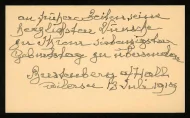 an frühere Zeiten, seine
herzlichsten Wünsche
zu Ihrem siebzigsten
Geburtstag zu übersenden
12 Juli 1919